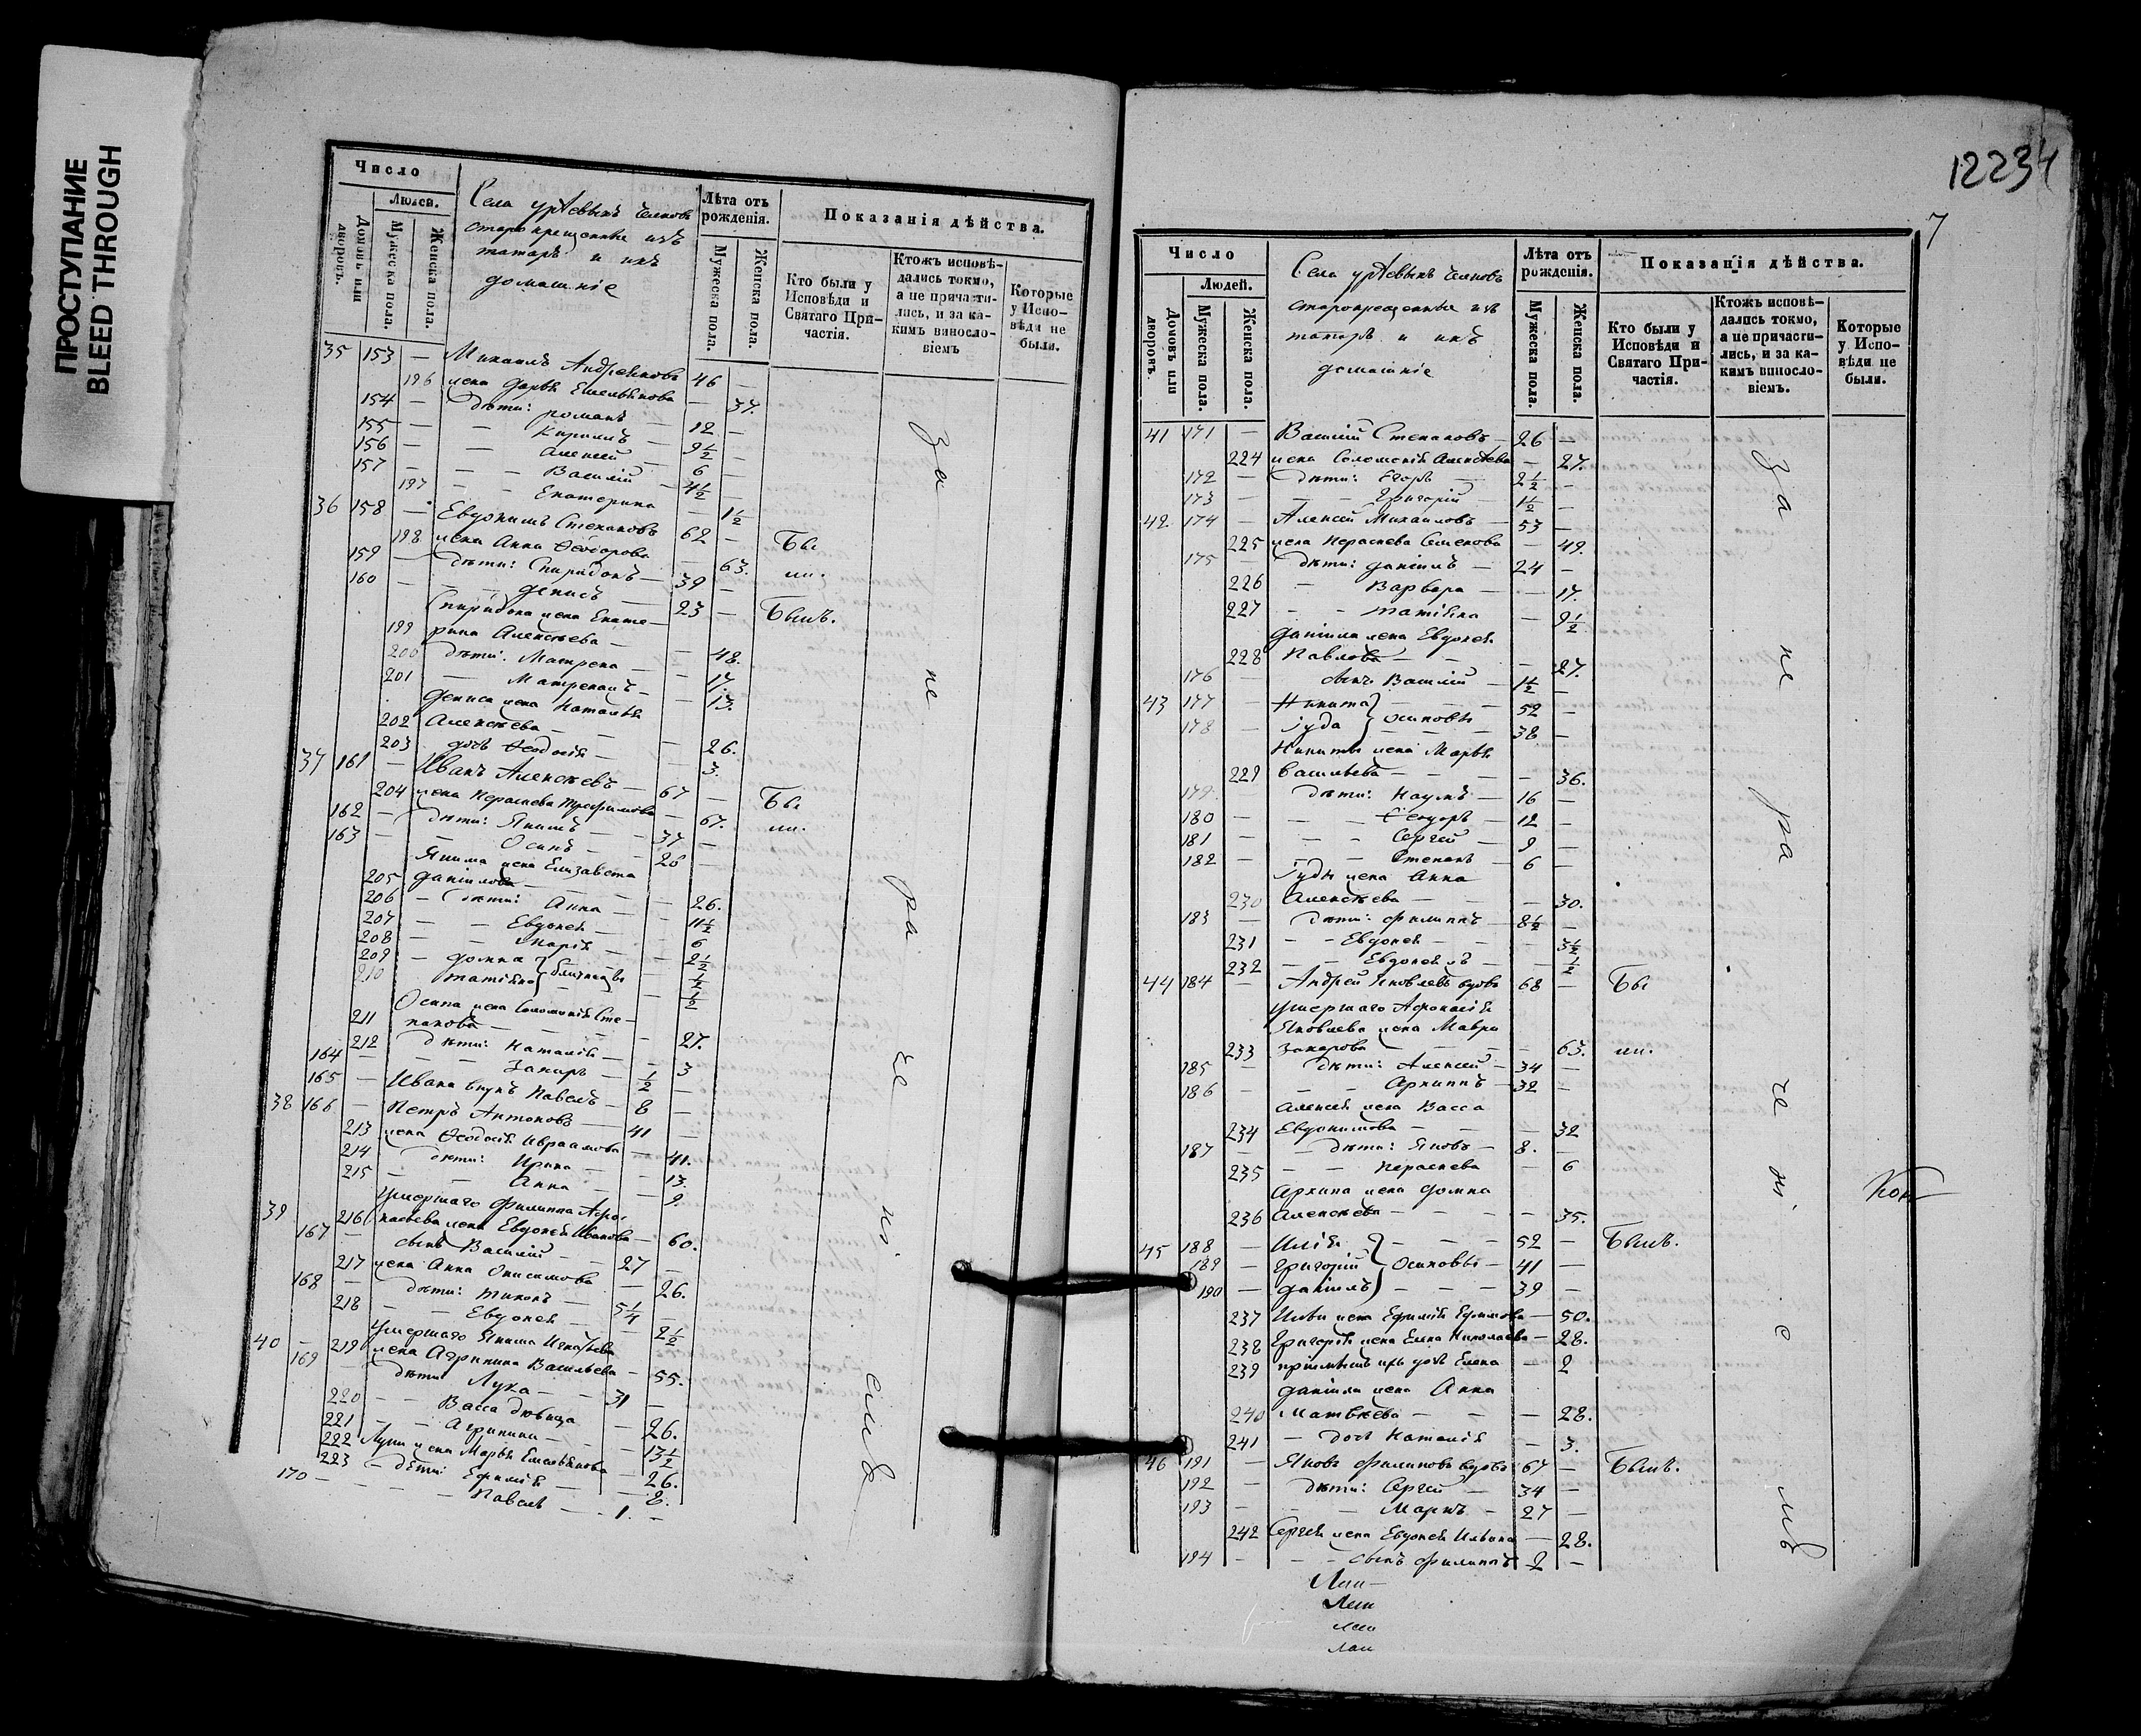 ПРОСТУПАНИЕ
BLEED THROUGH
Число
Людей.
Домовъ или дворовъ.
Мужеска пола.
Женска пола.
Села
старокрещенные изъ
татаръ и ихъ
домашніе
Лѣта отъ рожденія.
Мужеска пола.
Женска пола.
Показанія дѣйства.
Кто были у Исповѣди и Святаго Причастія.
Ктожъ исповѣдались токмо, а не причастились, и за какимъ винословіемъ
Которые у Исповѣди не были.
35 153 — Михаилъ Андреяновъ 46 —
196 жена Дарья Емельянова — 37.
154 — дѣти: Романъ — 12 —
155 — — Кирилъ — 9½ —
156 — — Алексей — 6 —
157 — — Василій — 4½ —
197 — — Екатерина — 1½
36 158 — Евдокимъ Степановъ 62 — Бы
198 жена Анна Ѳеодорова — 63. ли.
159 — дѣти: Спиридонъ — 39 —
160 — — Денисъ — 23 — Былъ.
Спиридона жена Екате-
199 рина Алексѣева — — 48.
200 дѣти: Матрена — — 17.
201 — Матрена — 13.
Дениса жена Наталья
202 Алексѣева — — 26.
203 дочь Ѳеодосія — — 3.
37 161 — Иванъ Алексѣевъ — 67 — Бы
204 жена Параскева Трофимова — 67. ли.
162 — дѣти: Якимъ — 37 —
163 — — Осипъ — 26 —
Якима жена Елизавета
205 Даніилова — — 26.
206 — дѣти: Анна — — 11½
207 — — Евдокея — — 6
208 — — Марія — — 2½
209 — Домна — ½
210 Татіяна } близнецы — ½
Осипа жена Соломонія Сте-
211 панова — — 27.
212 дѣти: Наталія — — 3
164 — — Захаръ — ½
165 — Ивана внукъ Павелъ — 8 —
38 166 — Петръ Антоновъ — 41 —
213 жена Ѳеодосія Авраамова — 41.
214 дѣти: Ирина — — 13.
215 — — Анна — — 9.
39 умершаго Филиппа Афо-
216 насьева жена Евдокея Иванова — 60.
167 — сынъ Василій — 27 —
217 жена Анна Онисимова — 26.
168 — дѣти: Тихонъ — 5¼ —
218 — — Евдокея — — 2½
40 — умершаго Якима Игнатьева
219 жена Агрипина Васильева — 55.
169 — дѣти Лука — — 31 —
220 — — Васса дѣвица — 26.
221 — — Агрипина — — 13½
222 Луки жена Марья Емельянова — 26.
223 — дѣти: Ефимія — — 8.
170 — — — Павелъ — 1. —
за не ра че ні емъ
12234
7
Число
Людей.
Домовъ или дворовъ.
Мужеска пола.
Женска пола.
Села
старокрещенные изъ
татаръ и ихъ
домашніе
Лѣта отъ рожденія.
Мужеска пола.
Женска пола.
Показанія дѣйства.
Кто были у Исповѣди и Святаго Причастія.
Ктожъ исповѣдались токмо, а не причастились, и за какимъ винословіемъ.
Которые у Исповѣди не были.
41 171 — Василій Степановъ — 26 —
224 жена Соломонія Алексѣева — 27.
172 — дѣти: Егоръ — 2½ —
173 — — Григорій — 1½ —
42 174 — Алексей Михаиловъ — 53 —
225 жена Параскева Семенова — 49.
175 — дѣти: Даніилъ — 24 —
226 — Варвара — — 17.
227 — — Татіяна — 9½
Даніила жена Евдокея
228 Павлова — — 27.
176 — сынъ Василій — 1½ —
43 177 — Никита } — 52 —
178 — Іуда } Осиповы 38 —
Никиты жена Марья
229 Васильева — — — 36.
179 дѣти: Наумъ — 16 —
180 — — Ѳеодоръ — 12 —
181 — — Сергей — 9 —
182 — — Степанъ — 6 —
Іуды жена Анна
230 Алексѣева — — — 30.
183 — дѣти: Филиппъ — 8½ —
231 — — Евдокея — — 3½
232 — — — ½
44 184 — Андрей Яковлевъ вдовъ 68 — Бы
умершаго Афонасія
Яковлева жена Мавра
233 Захарова — — 63. ли.
185 — дѣти: Алексей — 34 —
186 — — Архиппъ — 32 —
Алексея жена Васса
234 Евдокимова — — — 32
187 — дѣти: Яковъ — 8. —
235 — — Параскева — 6
Архипа жена Домна
236 Алексѣева — — — 35.
45 188 — Илія } — — 52 — Былъ.
189 — Григорій } Осиповы — 41 —
190 — Даніилъ } — — 39 —
237 Ильи жена Ефимія Ефимова — 50.
238 Григорія жена Елена Николаева — 28.
239 дочь Елена — 2
Даніила жена Анна
240 Матвѣева — — — 28.
241 — дочь Наталія — 3.
46 191 — Яковъ Филиповъ вдовъ 67 — Былъ.
192 — дѣти: Сергей — 34 —
193 — — Маркъ — 27 —
242 Сергея жена Евдокея Ильина — 28.
194 — — сынъ Филиппъ 2 —
за не ра че ні е мъ